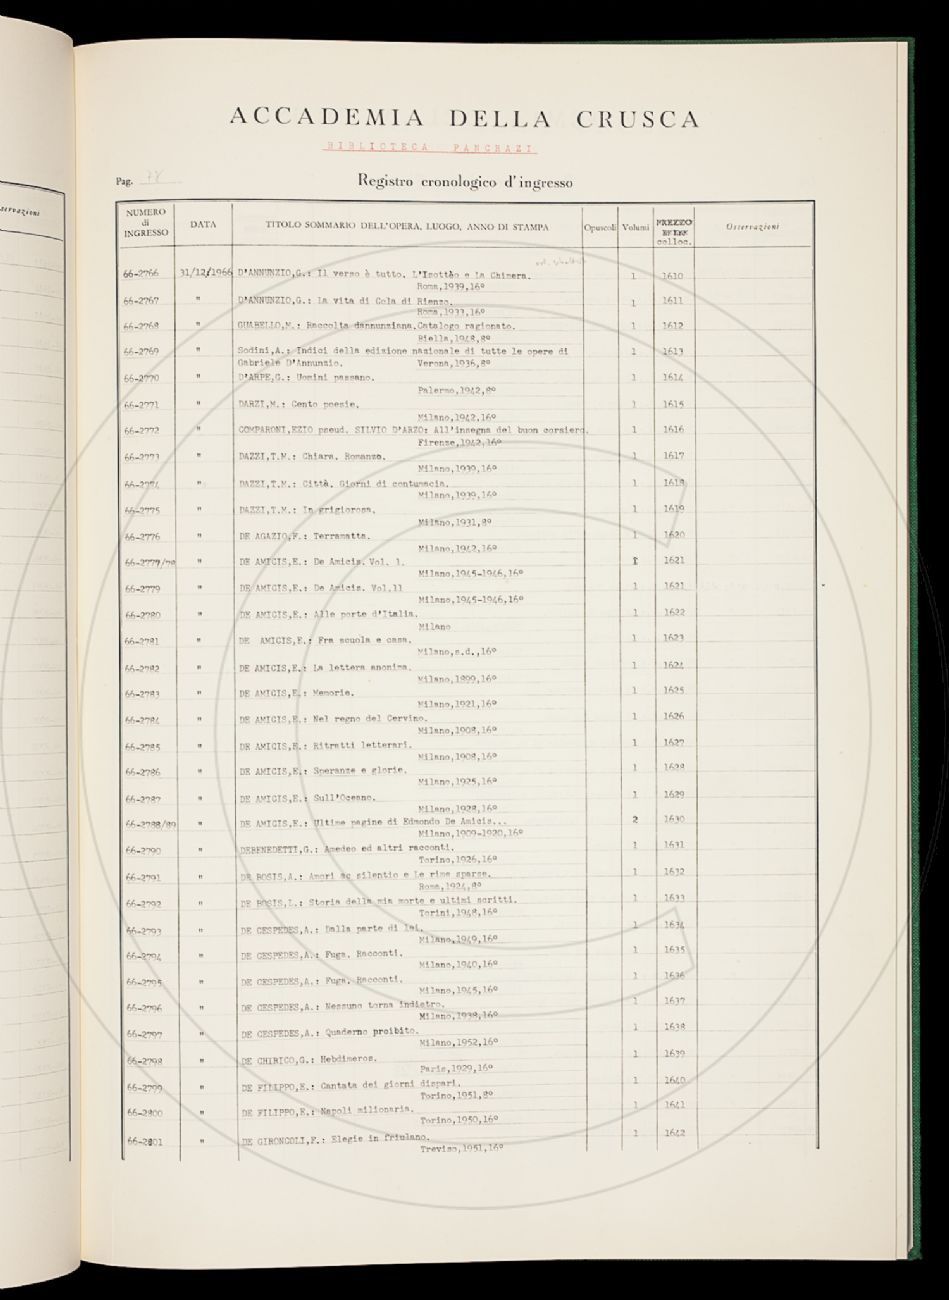 ACCADEMIA DELLA CRUSCA
BIBLIOTECA PANCRAZI
Pag. 78 Registro cronologico d'ingresso
servazioni
NUMERO di INGRESSO DATA TITOLO SOMMARIO DELL'OPERA, LUOGO, ANNO DI STAMPA Opuscoli Volumi PREZZO colloc. Osservazioni
66-2766 31/12/1966 D'ANNUNZIO,G.: Il verso è tutto. L'Isottèo e la Chimera. 1 1610
Roma,1939,16º
66-2767 " D'ANNUNZIO,G.: La vita di Cola di Rienzo. 1 1611
Roma,1933,16º
66-2768 " GUABELLO,M.: Raccolta dannunziana.Catalogo ragionato. 1 1612
Biella,1948,8º
66-2769 " Sodini,A.: Indici della edizione nazionale di tutte le opere di 1 1613
Gabriele D'Annunzio. Verona,1936,8º
66-2770 " D'ARPE,G.: Uomini passano. 1 1614
Palermo,1942,8º
66-2771 " DARZI,M.: Cento poesie. 1 1615
Milano,1942,16º
66-2772 " COMPARONI,EZIO pseud. SILVIO D'ARZO: All'insegna del buon corsiero. 1 1616
Firenze,1942,16º
66-2773 " DAZZI,T.M.: Chiara. Romanzo. 1 1617
Milano,1939,16º
66-2774 " DAZZI,T.M.: Città. Giorni di contumacia. 1 1618
Milano,1939,16º
66-2775 " DAZZI,T.M.: In grigiorosa. 1 1619
Milano,1931,8º
66-2776 " DE AGAZIO,F.: Terramatta. 1 1620
Milano,1942,16º
66-2777/78 " DE AMICIS,E.: De Amicis. Vol. 1. 1 1621
Milano,1945-1946,16º
66-2779 " DE AMICIS,E.: De Amicis. Vol.11 1 1621
Milano,1945-1946,16º
66-2780 " DE AMICIS,E.: Alle porte d'Italia. 1 1622
Milano
66-2781 " DE AMICIS,E.: Fra scuola e casa. 1 1623
Milano,s.d.,16º
66-2782 " DE AMICIS,E.: La lettera anonima. 1 1624
Milano,1899,16º
66-2783 " DE AMICIS,E.: Memorie. 1 1625
Milano,1921,16º
66-2784 " DE AMICIS,E.: Nel regno del Cervino. 1 1626
Milano,1908,16º
66-2785 " DE AMICIS,E.: Ritratti letterari. 1 1627
Milano,1908,16º
66-2786 " DE AMICIS,E.: Speranze e glorie. 1 1628
Milano,1925,16º
66-2787 " DE AMICIS,E.: Sull'Oceano. 1 1629
Milano,1928,16º
66-2788/89 " DE AMICIS,E.: Ultime pagine di Edmondo De Amicis... 2 1630
Milano,1909-1920,16º
66-2790 " DEBENEDETTI,G.: Amedeo ed altri racconti. 1 1631
Torino,1926,16º
66-2791 " DE BOSIS,A.: Amori ac silentio e Le rime sparse. 1 1632
Roma,1924,8º
66-2792 " DE BOSIS,L.: Storia della mia morte e ultimi scritti. 1 1633
Torini,1948,16º
66-2793 " DE CESPEDES,A.: Dalla parte di lei. 1 1634
Milano,1949,16º
66-2794 " DE CESPEDES,A.: Fuga. Racconti. 1 1635
Milano,1940,16º
66-2795 " DE CESPEDES,A.: Fuga. Racconti. 1 1636
Milano,1945,16º
66-2796 " DE CESPEDES,A.: Nessuno torna indietro. 1 1637
Milano,1938,16º
66-2797 " DE CESPEDES,A.: Quaderno proibito. 1 1638
Milano,1952,16º
66-2798 " DE CHIRICO,G.: Hebdòmeros. 1 1639
Paris,1929,16º
66-2799 " DE FILIPPO,E.: Cantata dei giorni dispari. 1 1640
Torino,1951,8º
66-2800 " DE FILIPPO,E.: Napoli milionaria. 1 1641
Torino,1950,16º
66-2801 " DE GIRONCOLI,F.: Elegie in friulano. 1 1642
Treviso,1951,16º